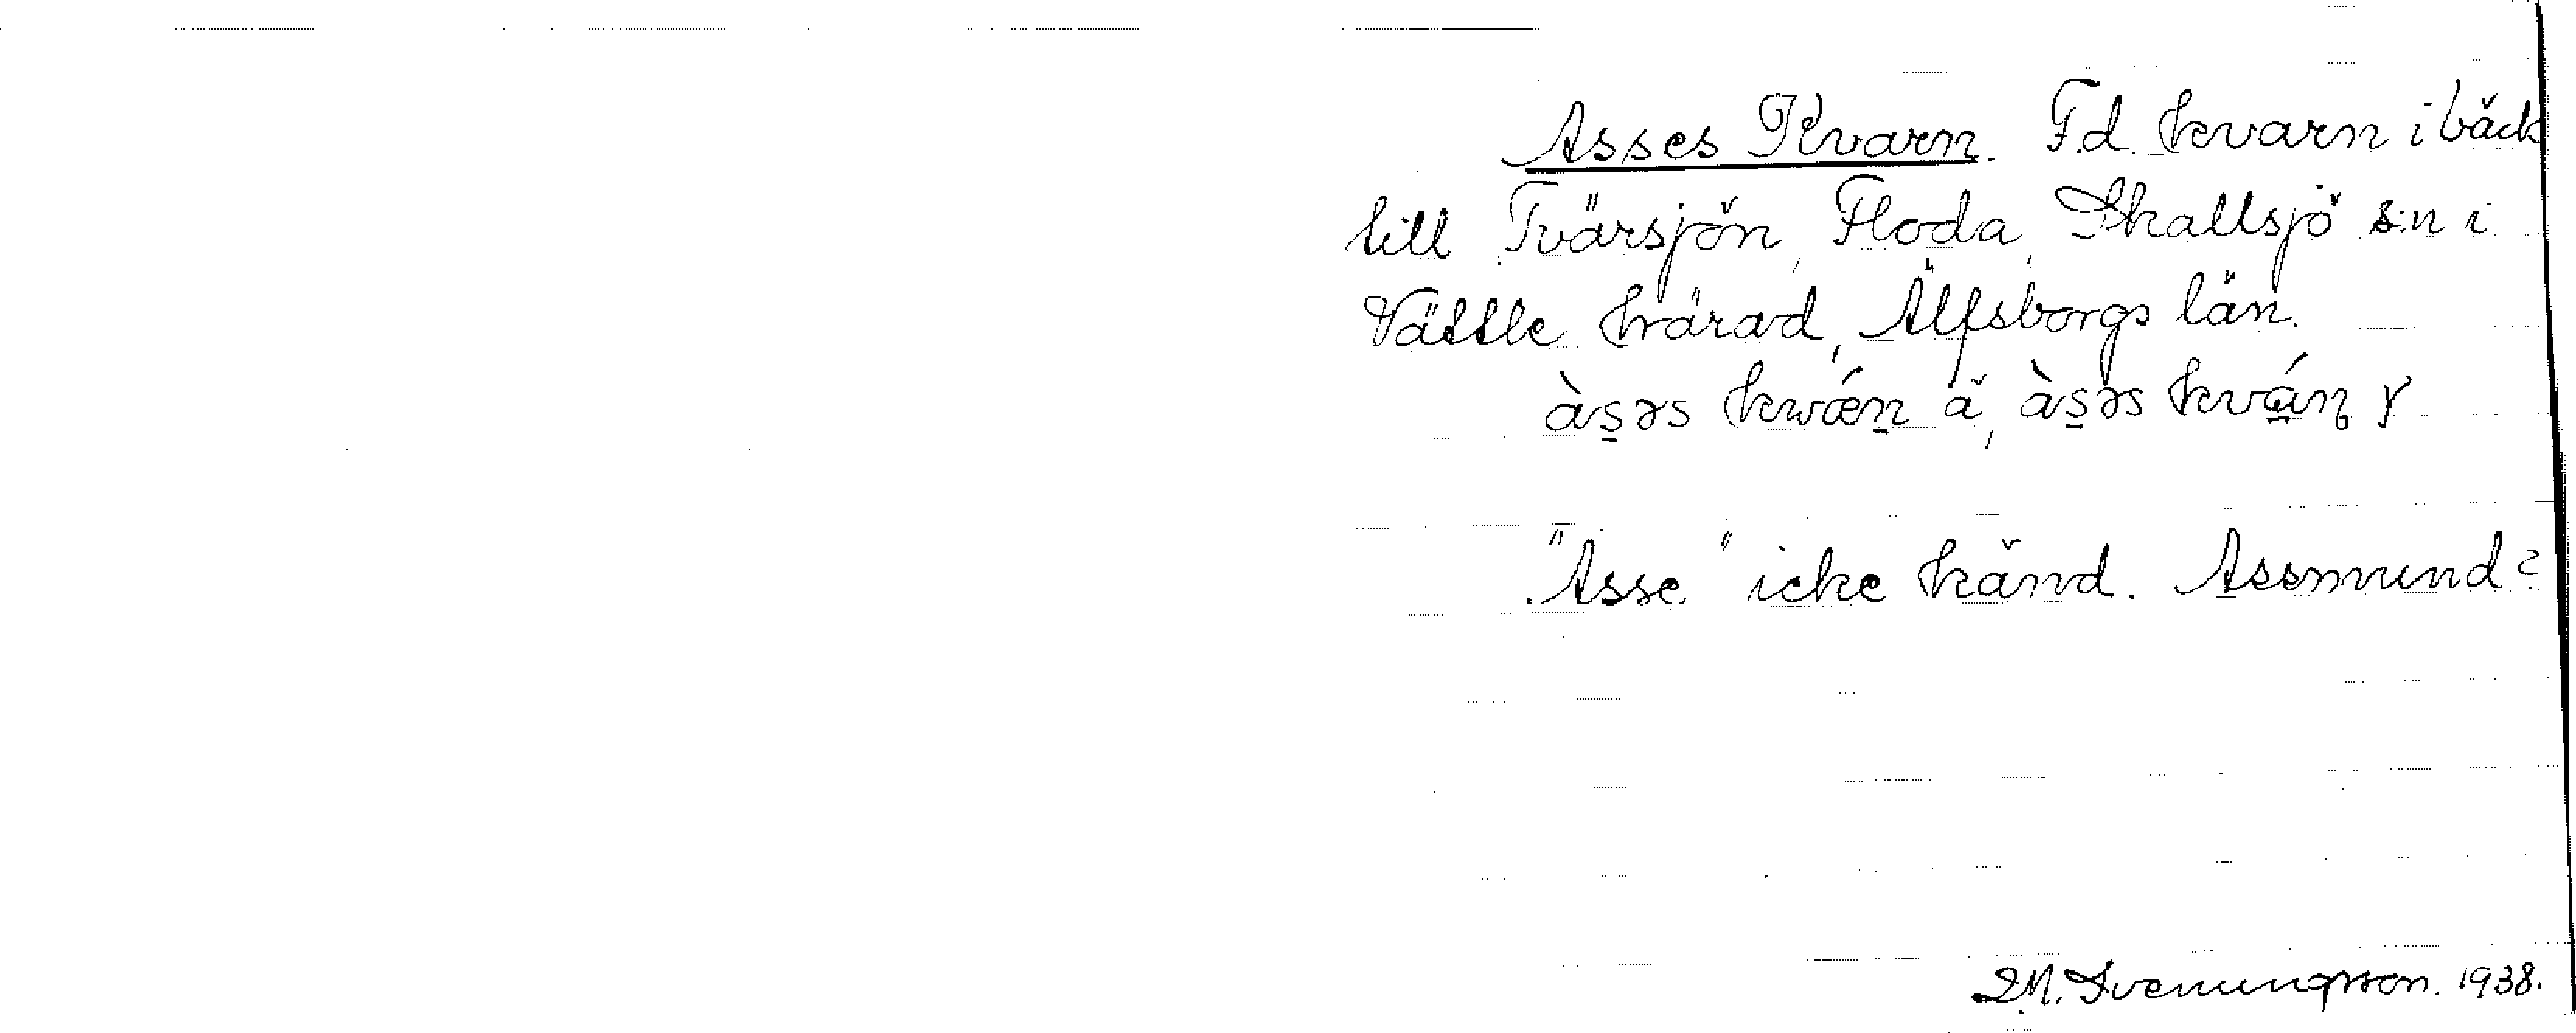 Asses Kvarn. F.d. kvarn i bäck
till Tvärsjön, Floda, Skallsjö s:n i
Vättle härad, Älfsborgs län.
às̠əs kwǽn̠ ä, às̠əs kván̥ y
"Asse" icke känd. Assmund?
Svenungsson. 1938.